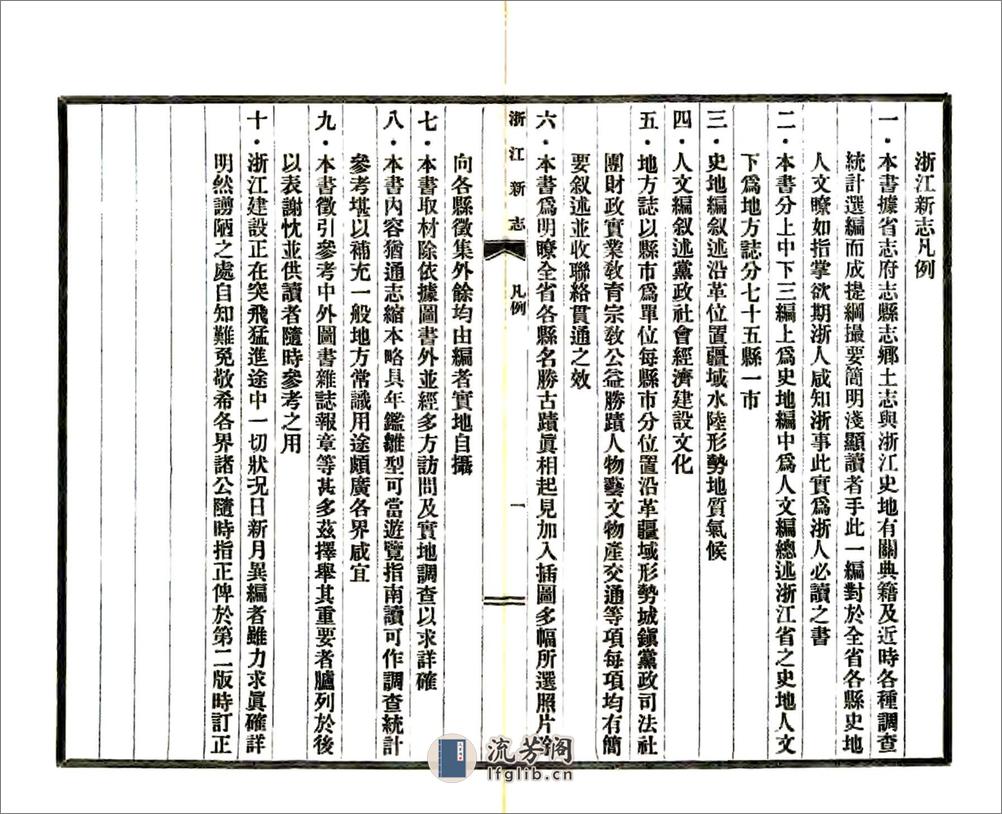 浙江新志凡例
一·本書據省志府志縣志鄉土志與浙江史地有關典籍及近時各種調查
統計選編而成提綱撮要簡明淺顯讀者手此一編對於全省各縣史地
人文瞭如指掌欲期浙人咸知浙事此實爲浙人必讀之書
二·本書分上中下三編上爲史地編中爲人文編總述浙江省之史地人文
下爲地方誌分七十五縣一市
三·史地編叙述沿革位置疆域水陸形勢地質氣候
四·人文編叙述黨政社會經濟建設文化
五·地方誌以縣市爲單位每縣市分位置沿革疆域形勢城鎭黨政司法社
團財政實業敎育宗敎公益勝蹟人物藝文物產交通等項每項均有簡
要叙述並收聯絡貫通之效
六·本書爲明瞭全省各縣名勝古蹟眞相起見加入插圖多幅所選照片除
浙江新志 凡例 一
向各縣徵集外餘均由編者實地自攝
七·本書取材除依據圖書外並經多方訪問及實地調查以求詳確
八·本書內容猶通志縮本略具年鑑雛型可當遊覽指南讀可作調查統計
參考堪以補充一般地方常識用途頗廣各界咸宜
九·本書徵引參考中外圖書雜誌報章等甚多茲擇舉其重要者臚列於後
以表謝忱並供讀者隨時參考之用
十·浙江建設正在突飛猛進途中一切狀况日新月異編者雖力求眞確詳
明然謭陋之處自知難免敬希各界諸公隨時指正俾於第二版時訂正
流芳閣
lfglib.cn